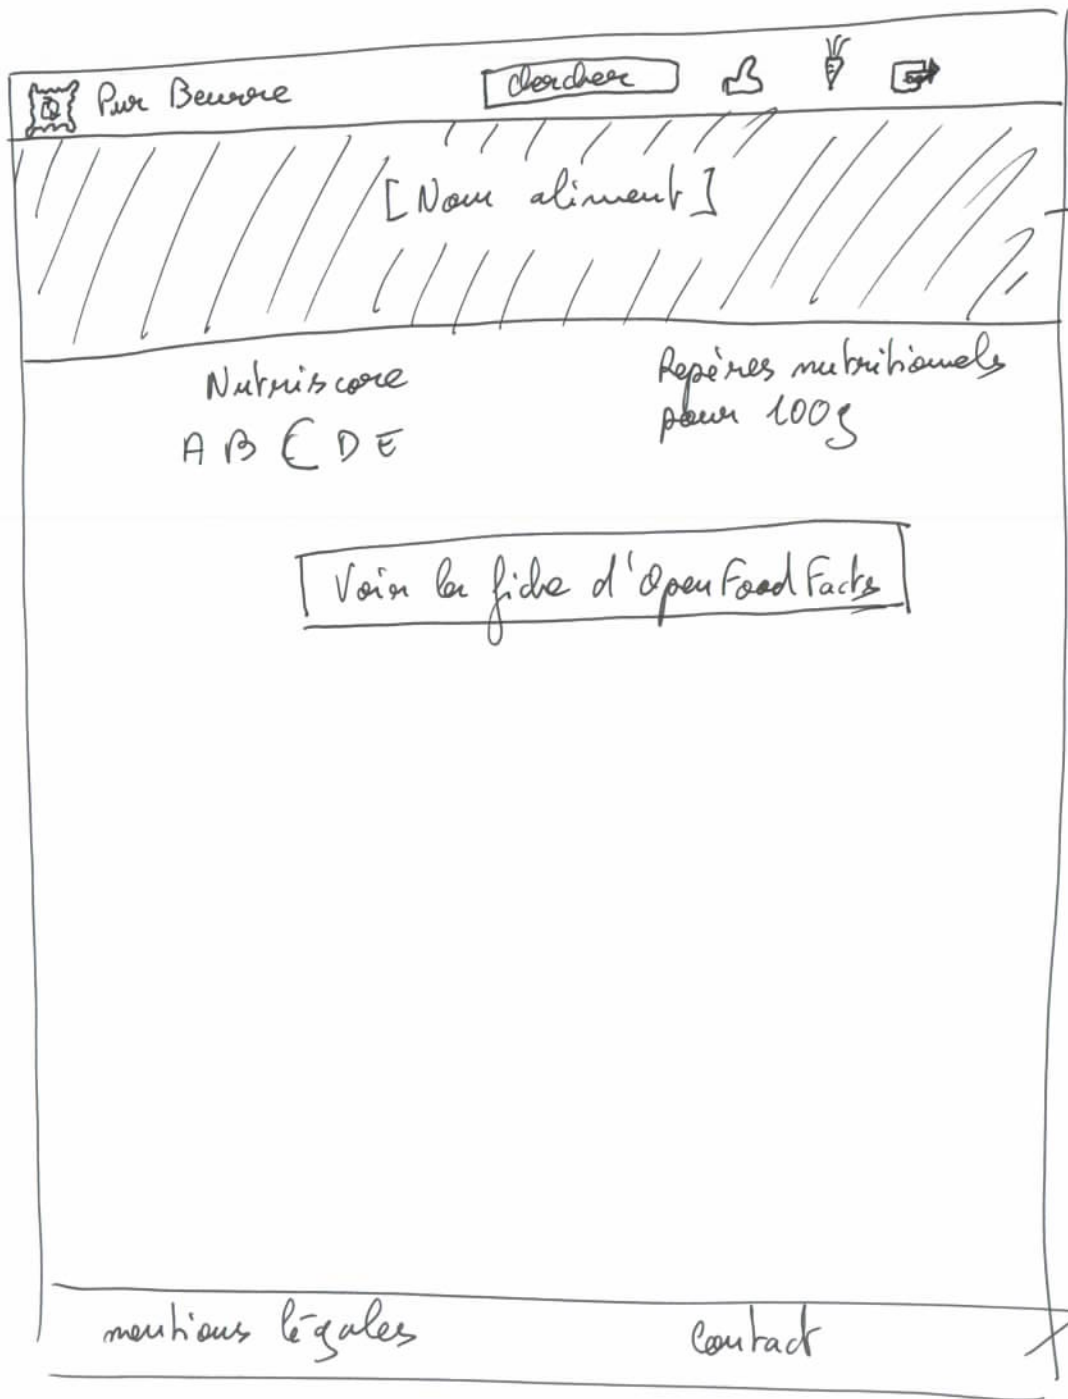 Pur Beurre chercher
[Nom aliment]
Nutriscore
A B C D E
Repères nutritionnels
pour 100g
Voir la fiche d'OpenFoodFacts
mentions légales contact